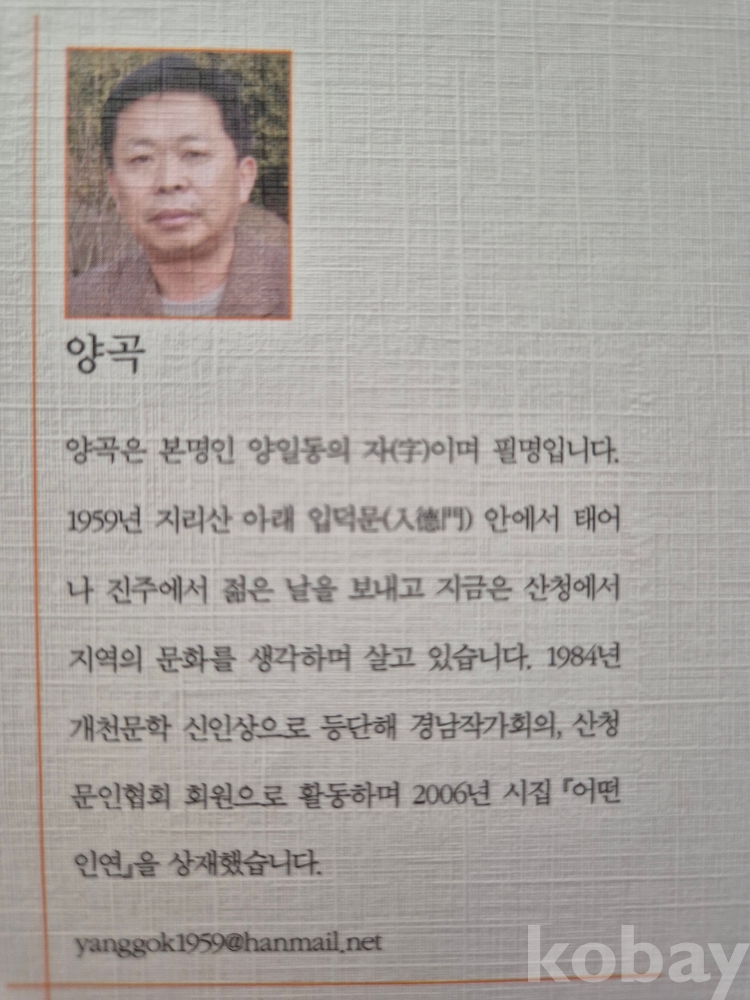 양곡
양곡은 본명인 양일동의 자(字)이며 필명입니다.
1959년 지리산 아래 입덕문(入德門) 안에서 태어
나 진주에서 젊은 날을 보내고 지금은 산청에서
지역의 문화를 생각하며 살고 있습니다. 1984년
개천문학 신인상으로 등단해 경남작가회의, 산청
문인협회 회원으로 활동하며 2006년 시집 『어떤
인연』을 상재했습니다.
yanggok1959@hanmail.net
kobay